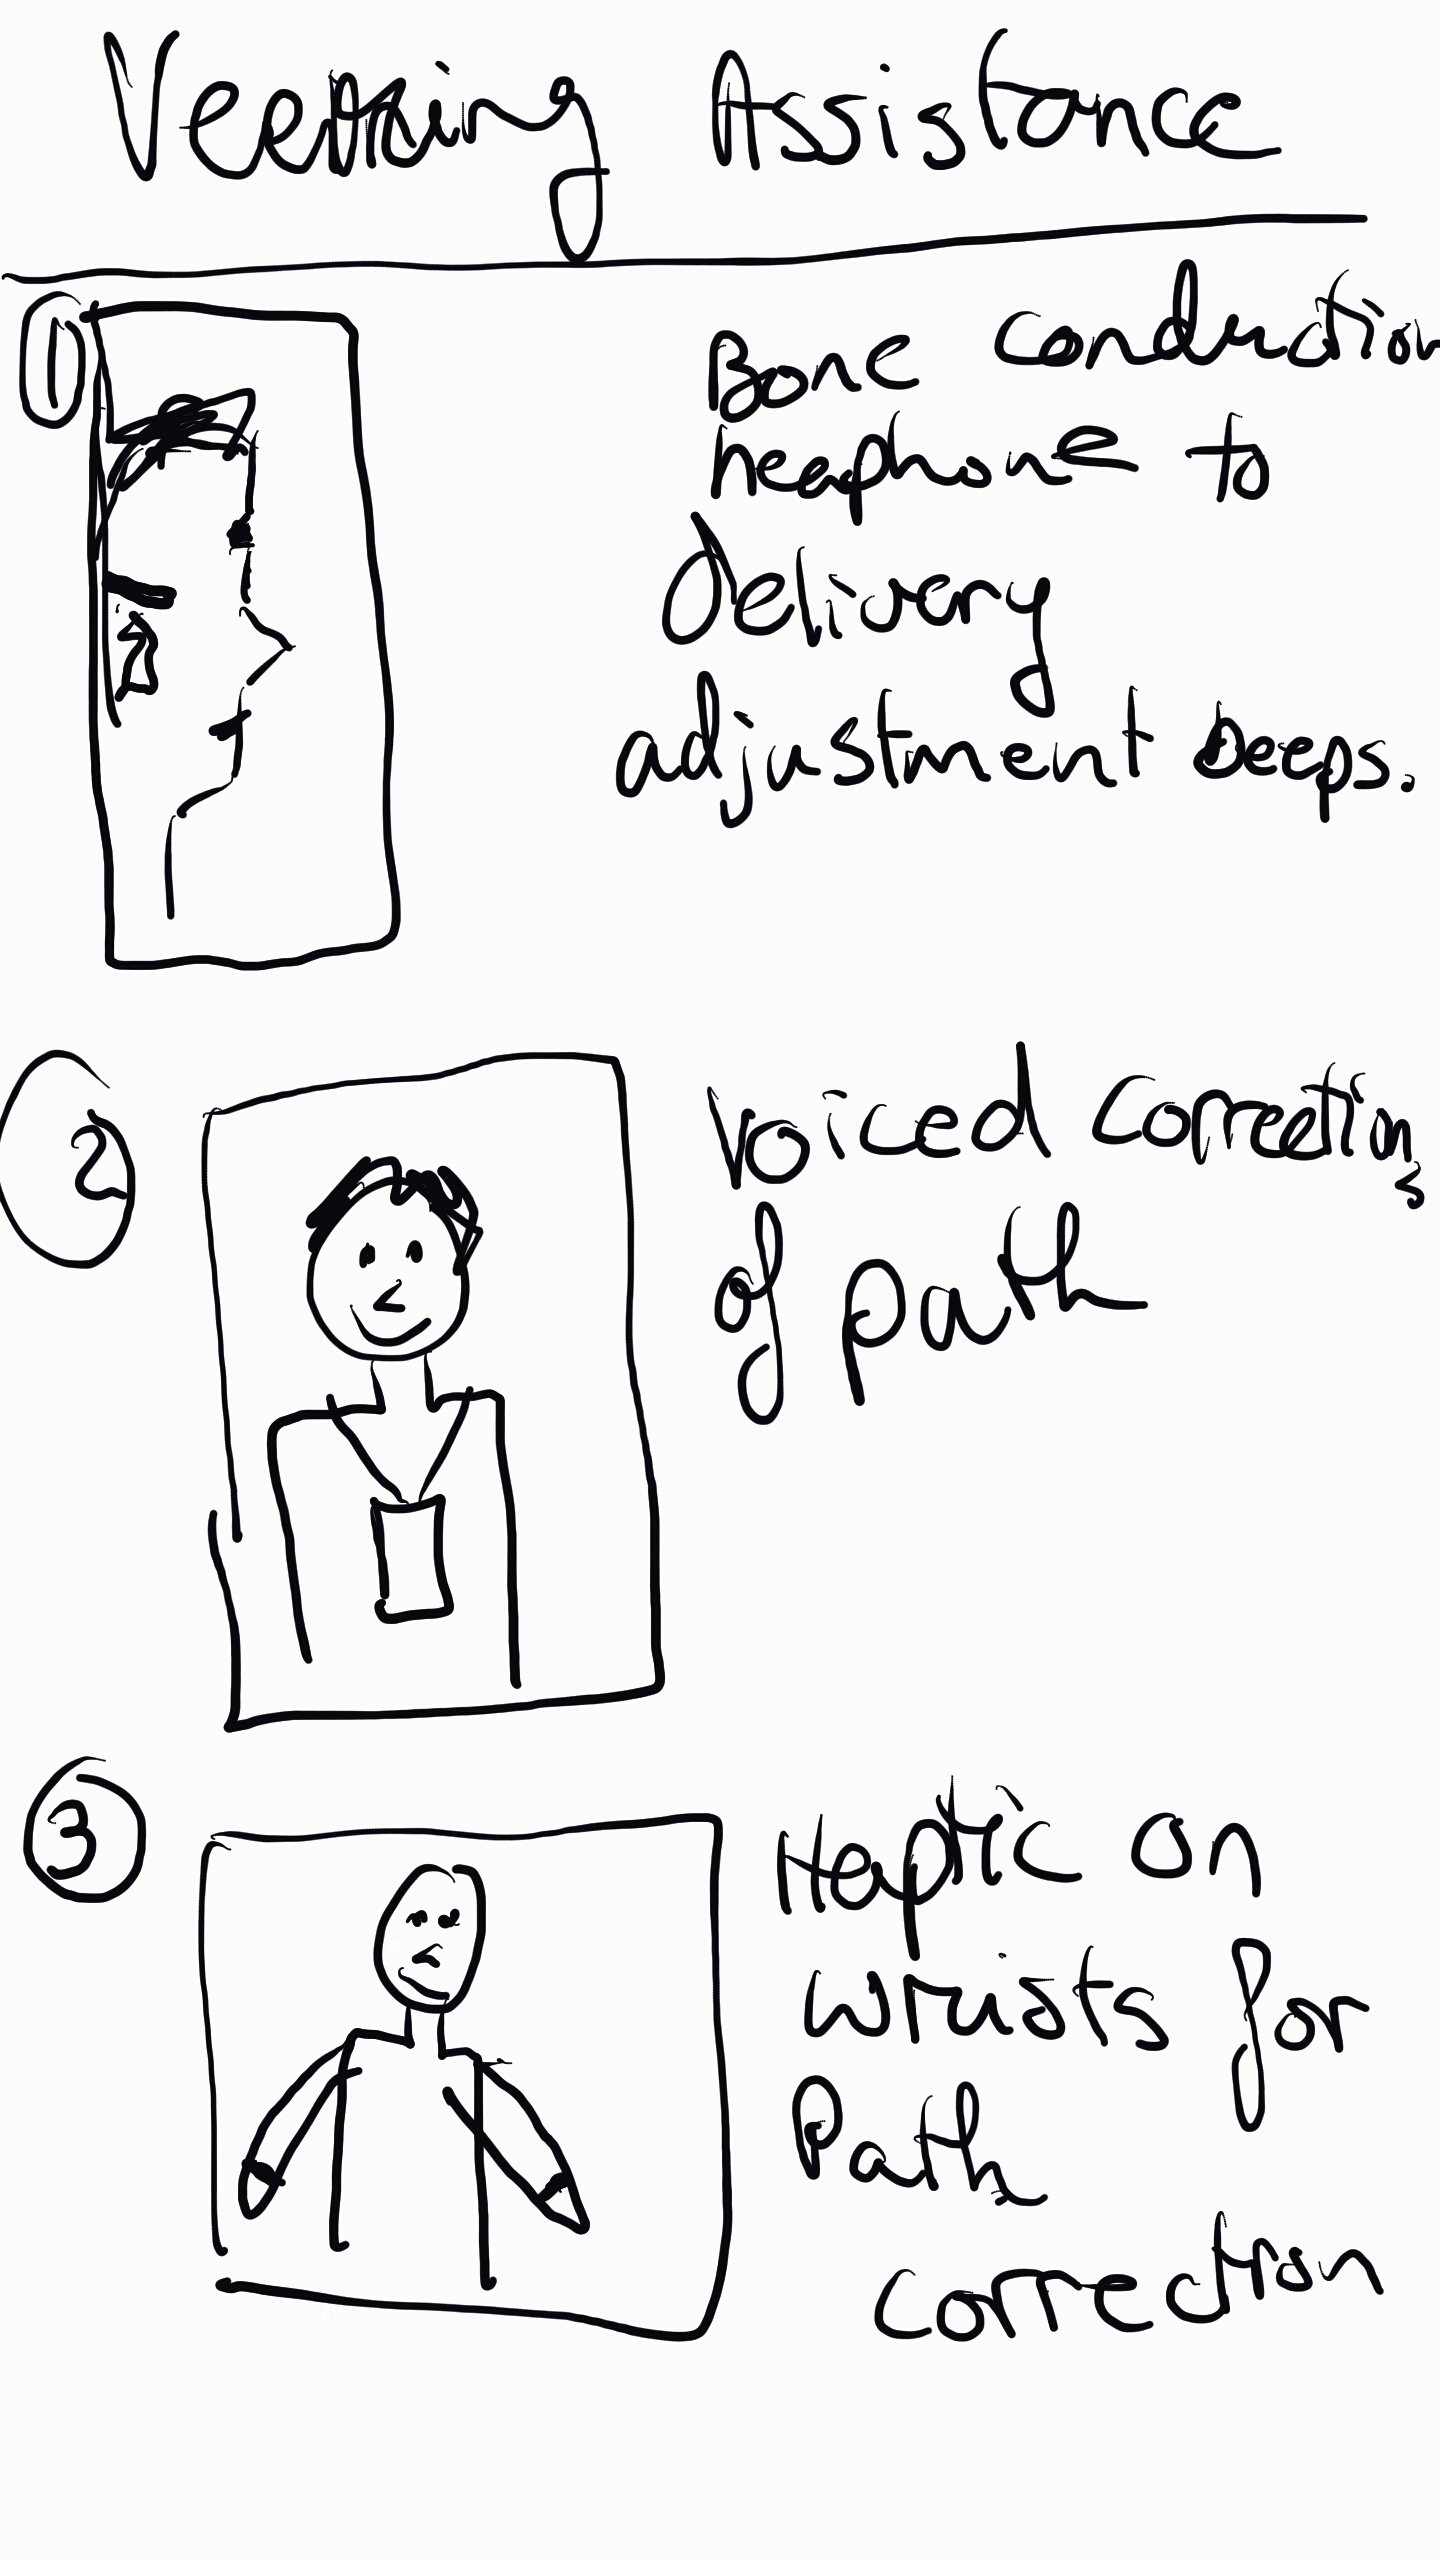 Veering Assistance
1
Bone conduction
heaphone to
delivery
adjustment beeps.
2
Voiced corrections
of path
3
Haptic on
wrists for
Path
correction